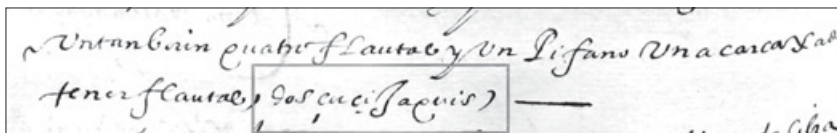 Untanborin quatro flautas y Un Pifano Una carcaxa de
tener flautas, dos çuçiJaquis)